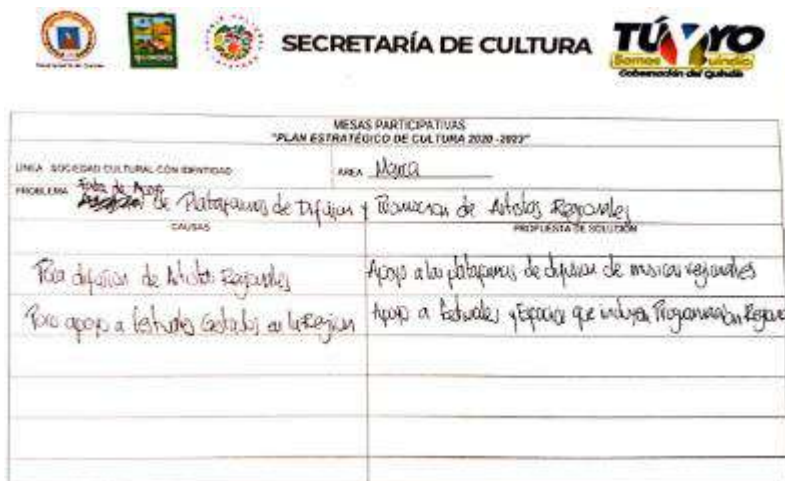 SECRETARÍA DE CULTURA
TÚ Y YO
Somos Quindío
Gobernación del Quindío
MESAS PARTICIPATIVAS
"PLAN ESTRATÉGICO DE CULTURA 2020 -2023"
LINEA SOCIEDAD CULTURAL CON IDENTIDAD
AREA Música
PROBLEMA Falta de Apoyo
de Plataformas de Difusion y Promocion de Artistas Regionales
CAUSAS
PROPUESTA DE SOLUCIÓN
Poca difusion de Artistas Regionales
Apoyo a las plataformas de difusion de musicas regionales
Poco apoyo a festivales Gestados en la Region
Apoyo a Festivales y Espacios que incluyen Programacion Regional